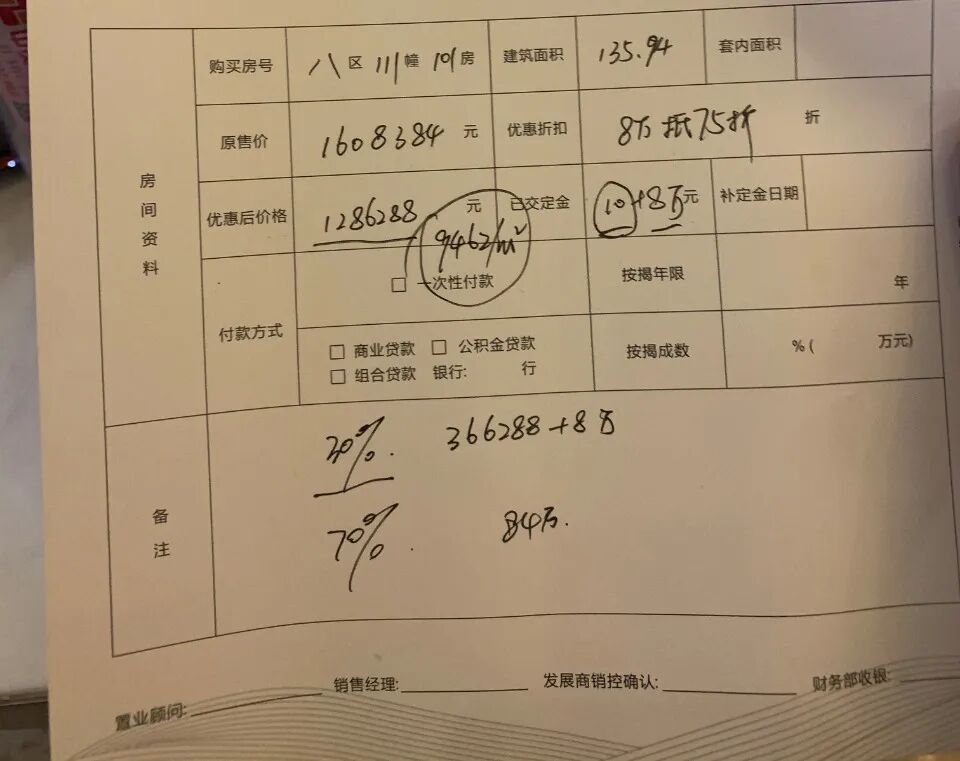 购买房号 八 区 111 幢 101 房 建筑面积 135.94 套内面积
原售价 1608384 元 优惠折扣 8万抵75折 折
房间资料
优惠后价格 1286288 元 已交定金 10+8万元 补定金日期
9462/m²
付款方式 □ 一次性付款 按揭年限 年
□ 商业贷款 □ 公积金贷款 按揭成数 %( 万元)
□ 组合贷款 银行: 行
备注
30% 366288+8万
70% 84万.
销售经理: 发展商销控确认: 财务部收银:
置业顾问: